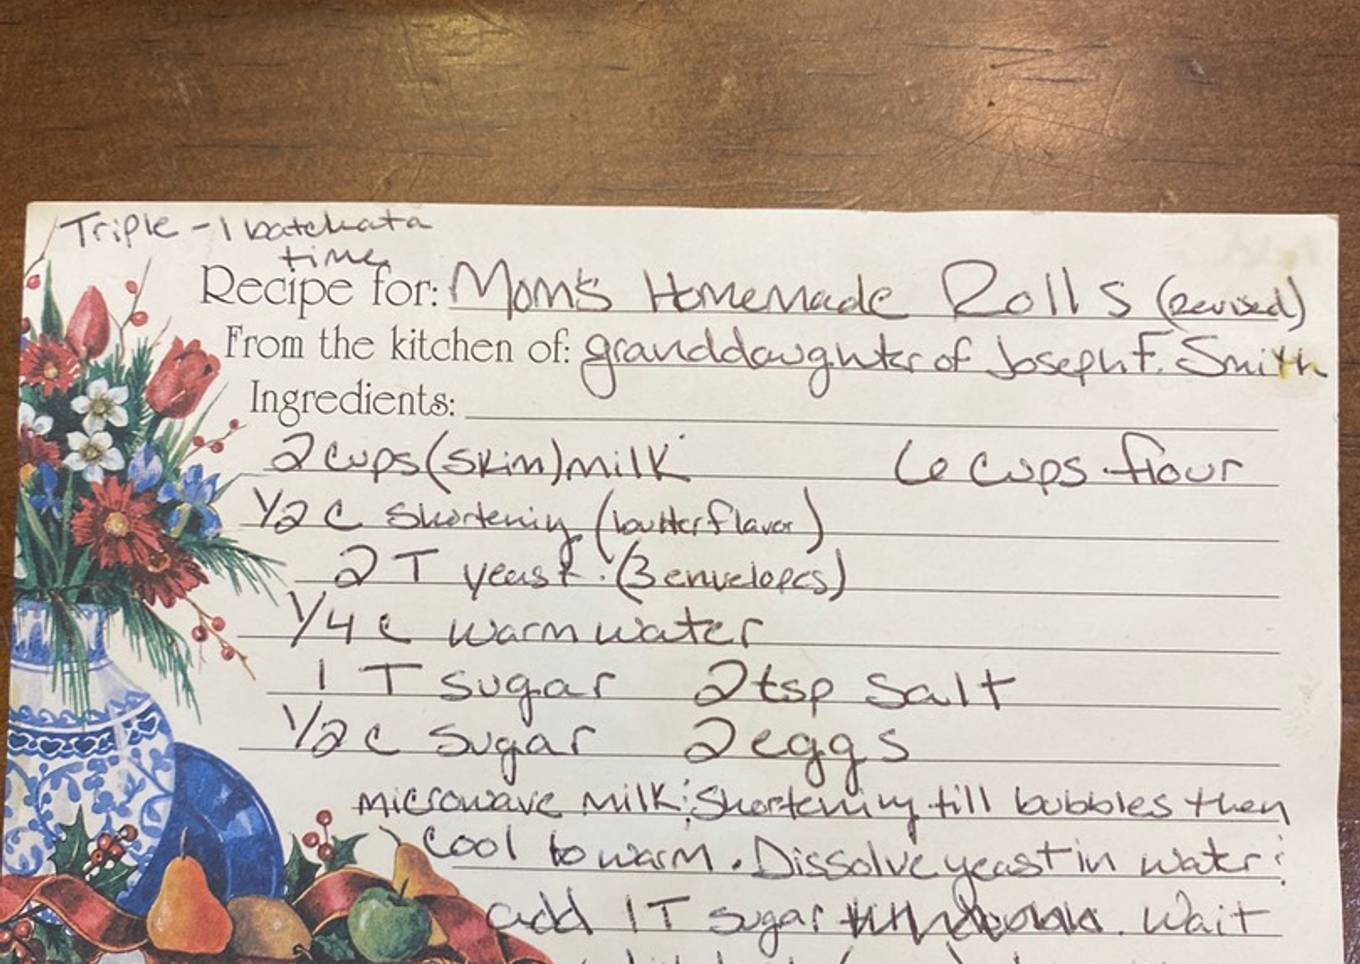 Triple - 1 batch at a
time
Recipe for: Mom's Homemade Rolls (revised)
From the kitchen of: granddaughter of Joseph F. Smith
Ingredients:
2 cups (skim) milk 6 cups flour
1/2 c shortening (butter flavor)
2 T yeast (3 envelopes)
1/4 c warm water
1 T sugar 2 tsp salt
1/2 c sugar 2 eggs
microwave milk & shortening till bubbles then
cool to warm. Dissolve yeast in water &
add 1 T sugar. Wait